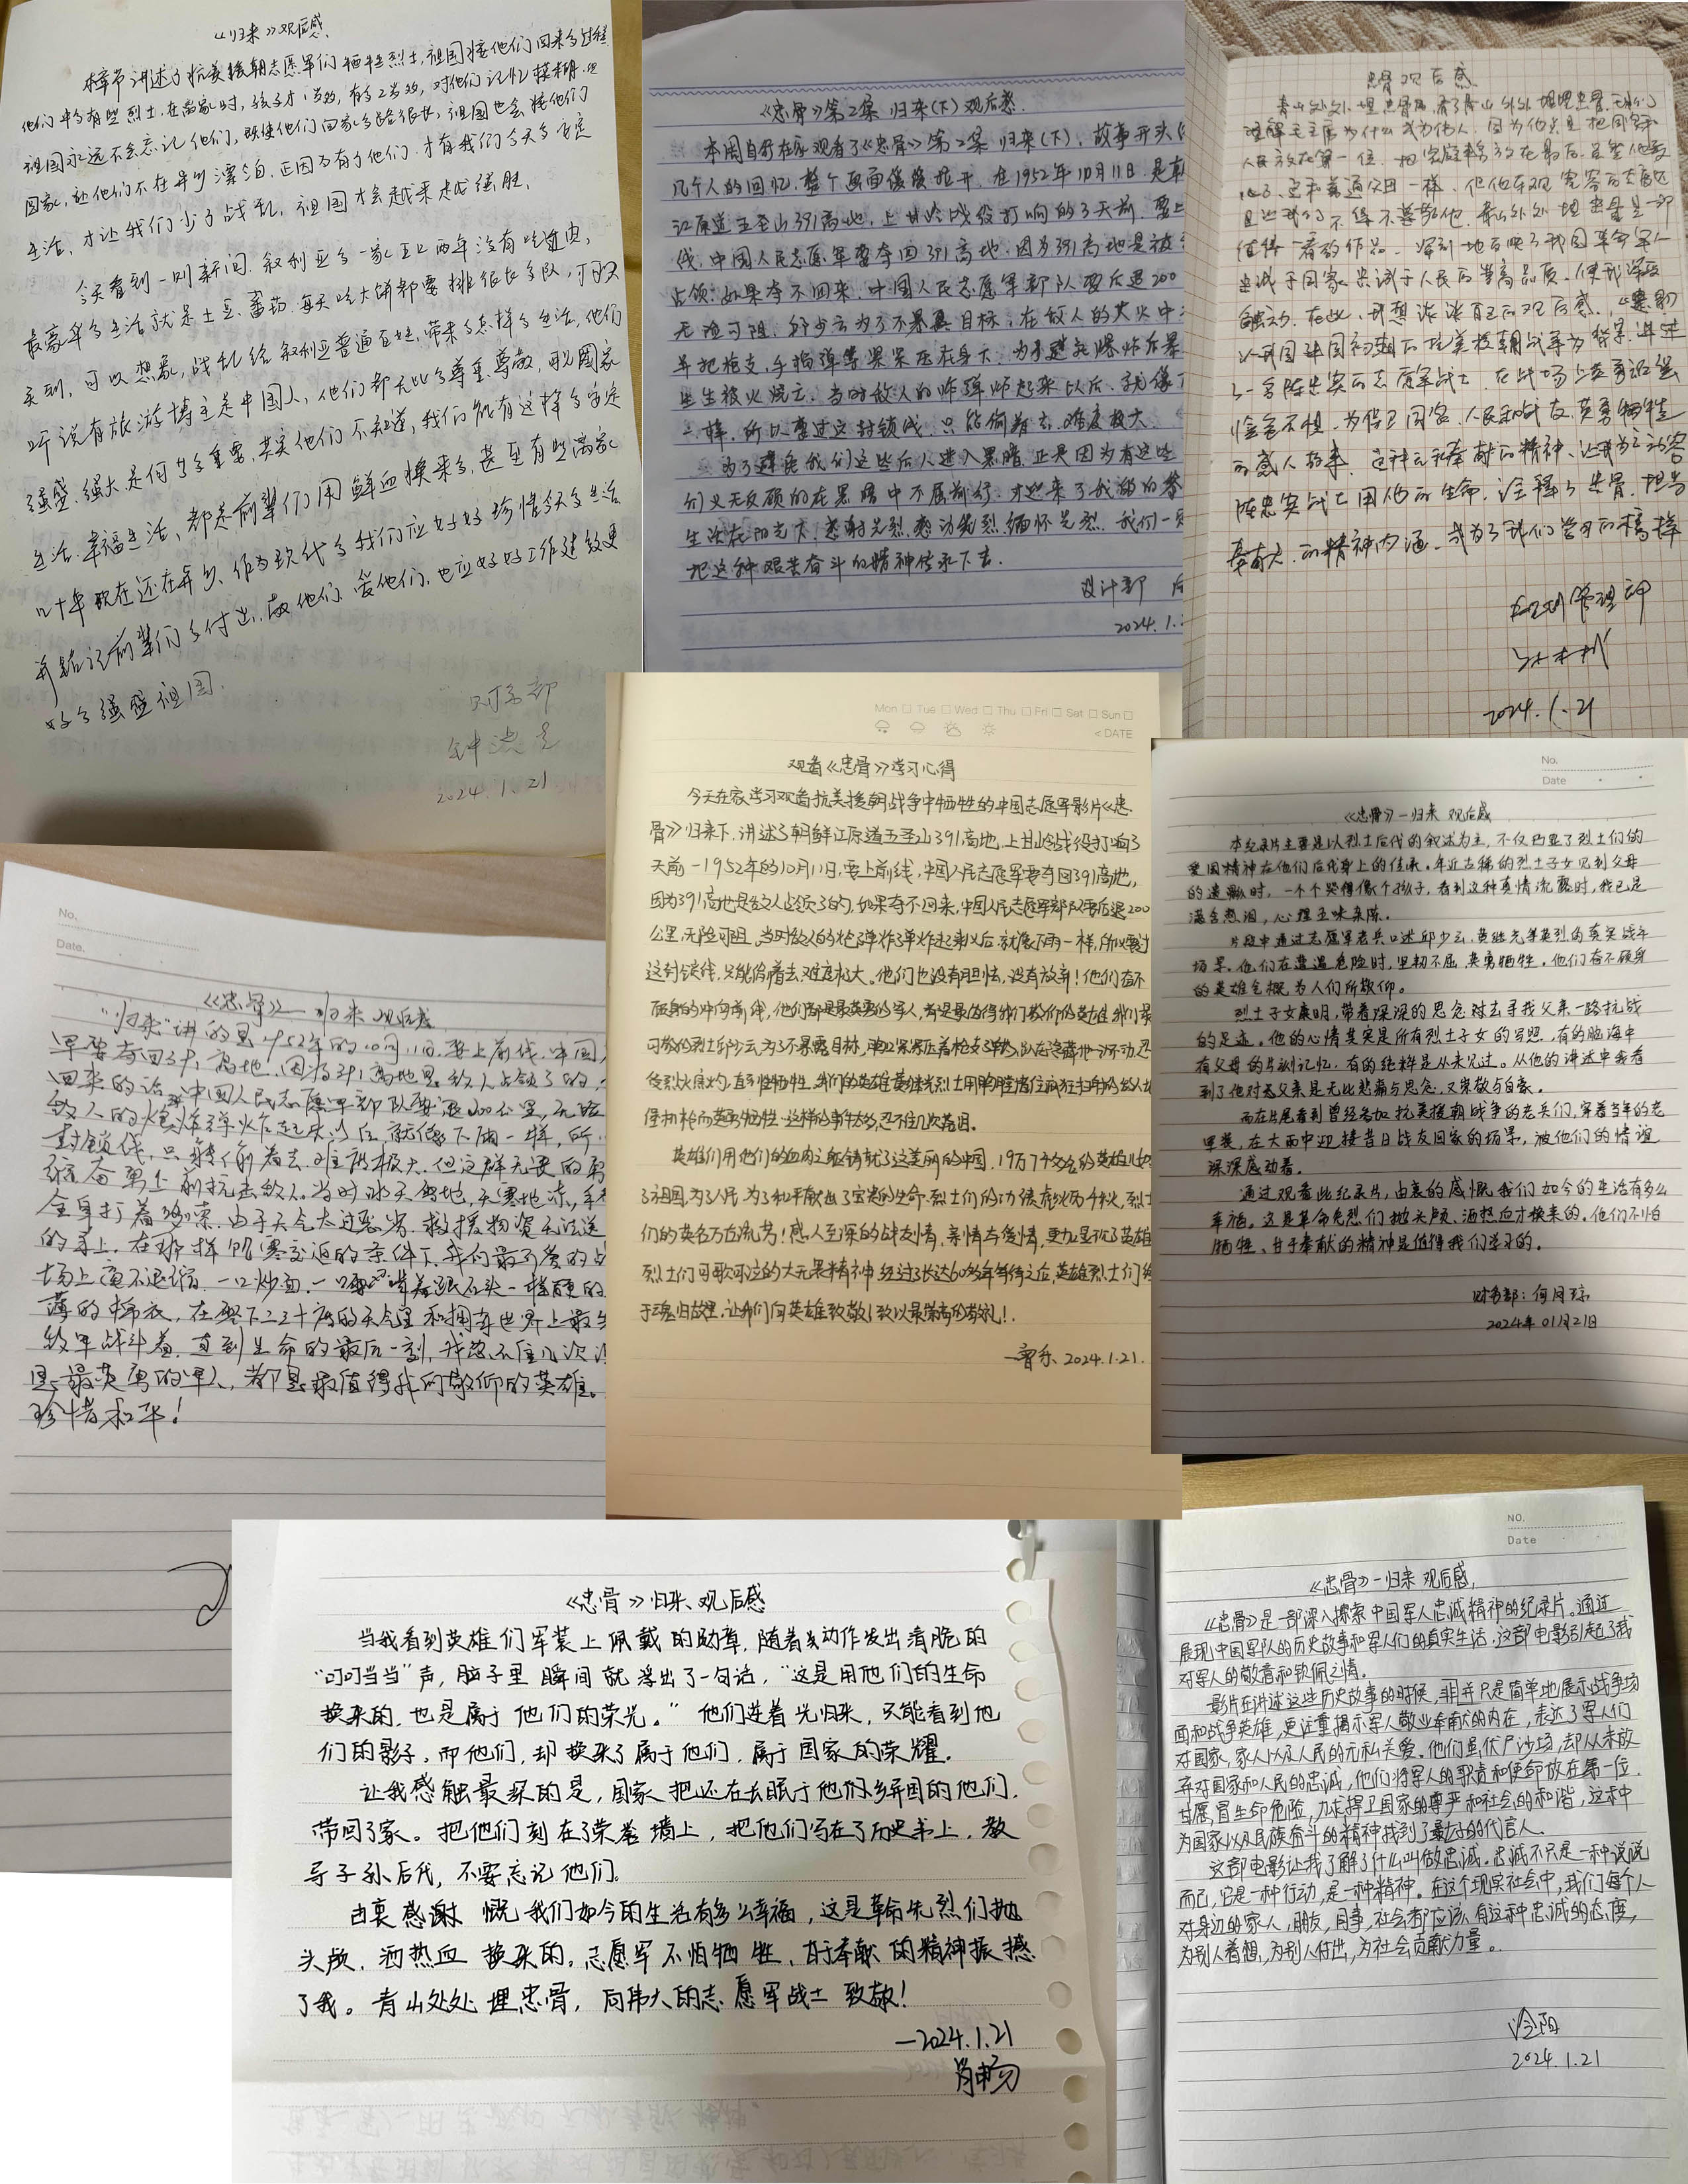 《归来》观后感
本章节讲述了抗美援朝志愿军们牺牲烈士,祖国接他们回来的过程
他们中有有些烈士,在离家时,孩子才1岁的,有的2岁的,对他们记忆模糊.但
祖国永远不会忘记他们,既使他们回家的路很长,祖国也会接他们
回家,让他们不在异乡漂泊.正因为有了他们.才有我们今天的安定
生活,才让我们少了战乱,祖国才会越来越强胜.
今天看到一则新闻.叙利亚的一家五口两年没有吃过肉,
最豪华的生活就是土豆、蕃茄.每天吃大饼都要排很长的队,才可以
买到,可以想象,战乱给叙利亚普通百姓,带来了怎样的生活,他们
听说有旅游博主是中国人,他们都无比的尊重.尊敬,可见国家
强盛.强大是何等的重要.其实他们不知道,我们能有这样的安定
生活.幸福生活,都是前辈们用鲜血换来的,甚至有些离家
几十年现在还在异乡、作为现代的我们应好好珍惜今天的生活
并铭记前辈们的付出.敬他们.爱他们.也应好好工作建设更
好的强盛祖国.
财务部
2024.1.21
《忠骨》第2集 归来(下)观后感.
本周自行在家观看了《忠骨》第2集 归来(下).故事开头
几个人的回忆.整个画面缓缓拉开.在1952年10月11日.是朝
江原道五圣山391高地,上甘岭战役打响的3天前.要上
线,中国人民志愿军要夺回391高地.因为391高地是被
占领:如果夺不回来.中国人民志愿军部队要后退200
无险可阻.邱少云为了不暴露目标.在敌人的火中
并把枪支,手榴弹等紧紧压在身下.为了避免爆炸后暴
生生被火烧亡.当时敌人的炸弹炸起来以后.就像下
一样.所以要过这封锁线.只能俯着去.难度极大.
为了避免我们这些后人进入黑暗.正是因为有这些
们义无反顾的在黑暗中不屈前行.才迎来了我们的
生活在阳光下.感谢先烈.感动先烈.缅怀先烈.我们一
把这种艰苦奋斗的精神传承下去.
设计部
2024.1.
忠骨观后感
青山处处埋忠骨,看了青山处处埋忠骨.
理解毛主席为什么成为伟人.因为他总是把国家和
人民放在第一位.把家庭放在最后.
心了.这和普通父母一样.
值得一看的作品.深刻地反映了我国革命军人
忠诚于国家.忠诚于人民的崇高品质.使我深受
触动.在此,我想谈谈自己的观后感.
以我国建国初期的抗美援朝战争为背景.讲述
了一名陈忠实的志愿军战士.在战场上英勇
为保卫国家.人民和战友.英勇牺牲
的感人故事.这种无私奉献的精神.
陈忠实战士用他的生命.诠释了忠骨.担当
奉献的精神内涵.成为了我们学习的榜样
管理部
2024.1.21
Mon Tue Wed Thu Fri Sat Sun
< DATE
观看《忠骨》学习心得
今天在家学习观看抗美援朝战争中牺牲的中国志愿军影片《忠
骨》归来下.讲述了朝鲜江原道五圣山391高地,上甘岭战役打响3
天前-1952年的10月11日,要上前线,中国人民志愿军要夺回391高地,
因为391高地是敌人占领了的,如果夺不回来,中国人民志愿军部队要后退200
公里,无险可阻,当时敌人的炮弹炸弹炸起来以后,就像下雨一样,所以要过
这封锁线,只能俯着去,难度极大。他们也没有胆怯,没有放弃!他们奋不
顾身的冲向前线,他们都是最英勇的军人,都是最值得我们敬仰的英雄.我们最
可敬的烈士邱少云,为了不暴露目标,紧紧压着枪支子弹,趴在隐蔽地一动不动,忍
受烈火烧灼,直到牺牲.我们的英雄黄继光烈士用胸膛堵住疯狂扫射的敌人地
堡机枪而英勇牺牲.这样的事件太多,忍不住几次落泪。
英雄们用他们的血肉之躯铸就了这美丽的中国.19万7千多名的英雄儿女
了祖国,为了人民 为了和平献出了宝贵的生命.烈士们的功德彪炳千秋,烈士
们的英名万古流芳!感人至深的战友情,亲情与爱情,更加显现了英雄
烈士们可歌可泣的大无畏精神.经过了长达60多年等待之后,英雄烈士们终
于魂归故里.让我们向英雄致敬!致以最崇高的敬礼!.
2024.1.21.
No.
Date
《忠骨》一归来 观后感
本纪录片主要是以烈士后代的叙述为主,不仅凸显了烈士们的
爱国精神在他们后代身上的传承.年近古稀的烈士子女见到父母
的遗物时,一个个哭得像个孩子,看到这种真情流露时,我已是
满含热泪,心理五味杂陈。
片段中通过志愿军老兵口述邱少云,黄继光等英烈的真实战斗
场景.他们在遭遇危险时,坚韧不屈 英勇牺牲。他们奋不顾身
的英雄气概,为人们所敬仰。
烈士子女康明,带着深深的思念对去寻找父亲一路抗战
的足迹。他的心情其实是所有烈士子女的写照,有的脑海中
有父母的片刻记忆.有的纯粹是从未见过。从他的讲述中我看
到了他对老父亲是无比悲痛与思念.又崇敬与自豪。
而在片尾看到曾经参加抗美援朝战争的老兵们,穿着当年的老
军装,在大雨中迎接昔日战友回家的场景,被他们的情谊
深深感动着。
通过观看此纪录片,由衷的感慨我们如今的生活有多么
幸福。这是革命先烈们抛头颅、洒热血才换来的。他们不怕
牺牲、甘于奉献的精神是值得我们学习的。
财务部:何月琼
2024年01月21日
No.
Date.
《忠骨》—归来 观后感
“归来”讲的是1952年的10月11日.要上前线.中国
军要夺回391高地.因为391高地是敌人占领了的,
回来的话 中国人民志愿军部队要退200公里,无险
敌人的炮弹炸弹炸起来以后,就像下雨一样,所
封锁线,只能俯着去.难度极大.但这群无畏的
奋勇上前抗击敌人.当时冰天雪地,天寒地冻,手
全身打着哆嗦.由于天气太过恶劣.救援物资无法送
的手上.在那样饥寒交迫的条件下.我们最可爱的战
场上毫不退缩.一口炒面.一口雪啃着跟石头一样硬的
薄的棉衣,在零下二三十度的天气里和拥有世界上最先
敌军战斗着.直到生命的最后一刻.我忍不住几次
是最英勇的军人,都是最值得我们敬仰的英雄。
珍惜和平!
《忠骨》归来、观后感
当我看到英雄们军装上佩戴的勋章,随着动作发出清脆的
“叮叮当当”声,脑子里瞬间就浮出了一句话,“这是用他们的生命
换来的,也是属于他们的荣光。”他们迎着光归来,只能看到他
们的影子,而他们,却换来了属于他们,属于国家的荣耀。
让我感触最深的是,国家把还在长眠于他们乡异国的他们,
带回了家。把他们刻在了荣誉墙上,把他们写在了历史书上,教
导子孙后代,不要忘记他们。
由衷感谢 慨我们如今的生活有多么幸福,这是革命先烈们抛
头颅,洒热血 换来的。志愿军不怕牺牲,甘于奉献的精神振撼
了我。青山处处埋忠骨,向伟大的志愿军战士致敬!
—2024.1.21
肖畅
NO.
Date
《忠骨》一归来 观后感,
《忠骨》是一部深入探索中国军人忠诚精神的纪录片。通过
展现中国军队的历史故事和军人们的真实生活,这部电影引起了我
对军人的敬畏和钦佩之情。
影片在讲述这些历史故事的时候,非并只是简单地展示战争场
面和战争英雄,更注重揭示军人敬业奉献的内在,表达了军人们
对国家,家人以及人民的无私关爱。他们虽伏尸沙场,却从未放
弃对国家和人民的忠诚,他们将军人的职责和使命放在第一位,
甘愿冒生命危险,力求捍卫国家的尊严和社会的和谐,这种
为国家以及民族奋斗的精神找到了最好的代言人。
这部电影让我了解了什么叫做忠诚。忠诚不只是一种说说
而已,它是一种行动,是一种精神。在这个现实社会中,我们每个人
对身边的家人,朋友,同事,社会都应该有这种忠诚的态度,
为别人着想,为别人付出,为社会贡献力量。
冷阳
2024.1.21